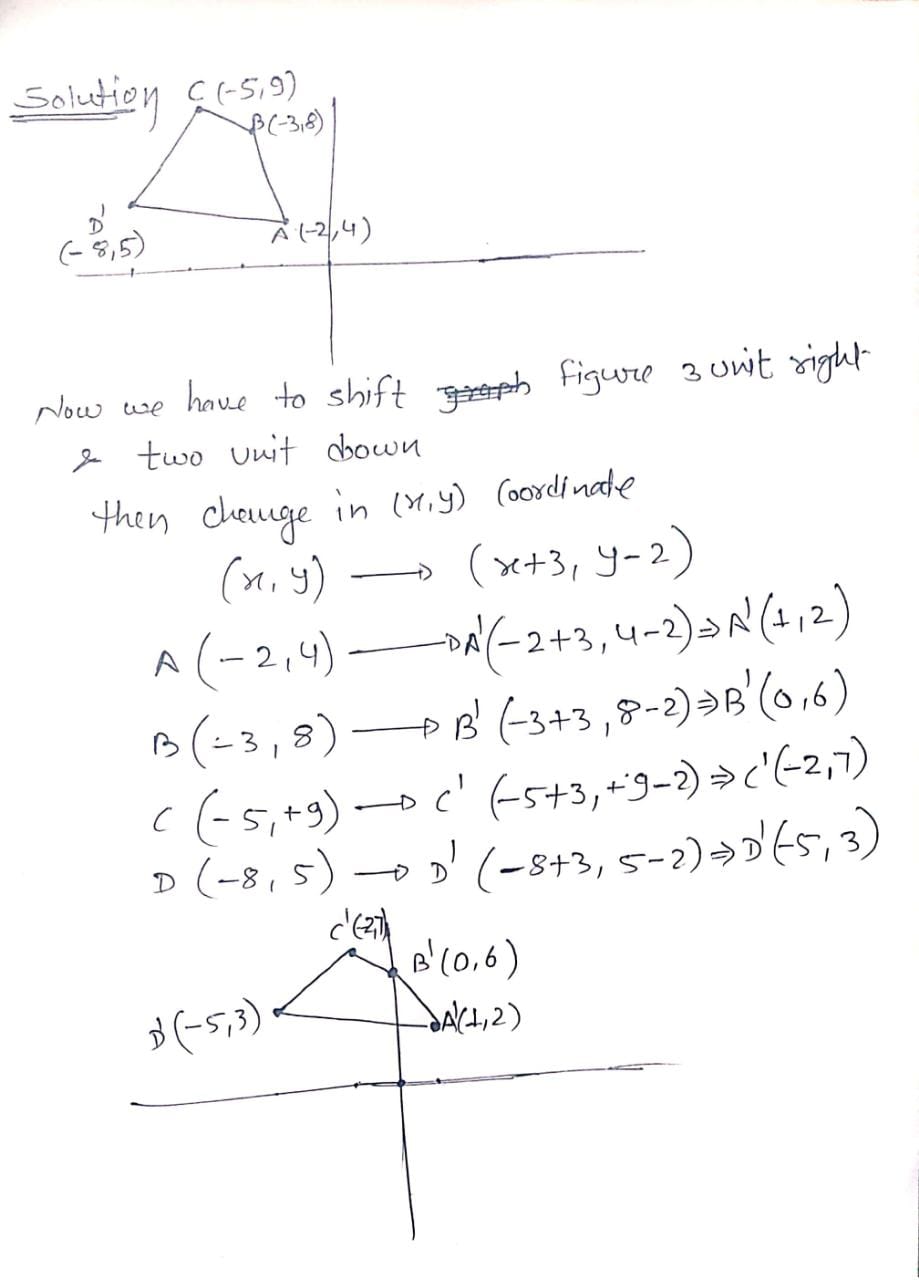 Solution C (-5,9)
B(-3,8)
D'
(-8,5)
A (-2,4)
Now we have to shift graph figure 3 unit right
& two unit down
then change in (x,y) coordinate
(x,y) → (x+3, y-2)
A (-2,4) → A' (-2+3, 4-2) ⇒ A' (1,2)
B (-3,8) → B' (-3+3, 8-2) ⇒ B' (0,6)
C (-5,+9) → C' (-5+3, +9-2) ⇒ C' (-2,7)
D (-8,5) → D' (-8+3, 5-2) ⇒ D' (-5,3)
C' (-2,7)
B' (0,6)
D' (-5,3)
A' (1,2)